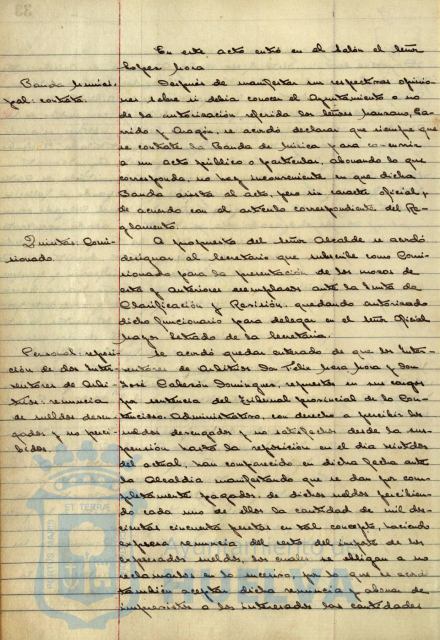 En este acto entró en el Salón el señor
López Mora
Banda Munici-
pal: contrata.
Después de manifestar sus respectivas opinio-
nes sobre si debía conocer el Ayuntamiento o no
de la autorización referida los señores Manzano, Ga-
rrido y Aragón, se acordó declarar que siempre que
se contrate la Banda de Música para concurrir
a un acto público o particular, abonando lo que
corresponda, no hay inconveniente en que dicha
Banda asista al acto, pero sin caracter oficial, y
de acuerdo con el artículo correspondiente del Re-
glamento.
Quintas: Comi-
sionado.
A propuesta del señor Alcalde se acordó
designar al Secretario que subscribe como Comi-
sionado para la presentación de los mozos de
este y anteriores reemplazos ante la Junta de
Clasificación y Revisión, quedando autorizado
dicho funcionario para delegar en el señor Oficial
Mayor Letrado de la Secretaría.
Personal: reposi-
ción de dos Inter-
ventores de Arbi-
trios: renuncia
de sueldos deven-
gados y no perci-
bidos.
Se acordó quedar enterado de que los Inter-
ventores de Arbitrios Don Félix Mora Mora y Don
José Calderón Domínguez, repuestos en sus cargos
por sentencia del Tribunal provincial de lo Con-
tencioso-Administrativo, con derecho a percibir los
sueldos devengados y no satisfechos desde la sus-
pensión hasta la reposición en el día
del actual, han comparecido en dicha fecha ante
la Alcaldía manifestando que se dan por com-
pletamente pagados de dichos sueldos percibiendo
cada uno de ellos la cantidad de mil dos-
cientas cincuenta pesetas en tal concepto, haciendo
expresa renuncia del resto del importe de los
expresados sueldos, los cuales se obligan a no
reclamarlos en lo sucesivo, por lo que se acordó
también aceptar dicha renuncia y abonar de
imprevistos a los interesados las cantidades
ET TERRAE
Ayuntamiento
HUELVA